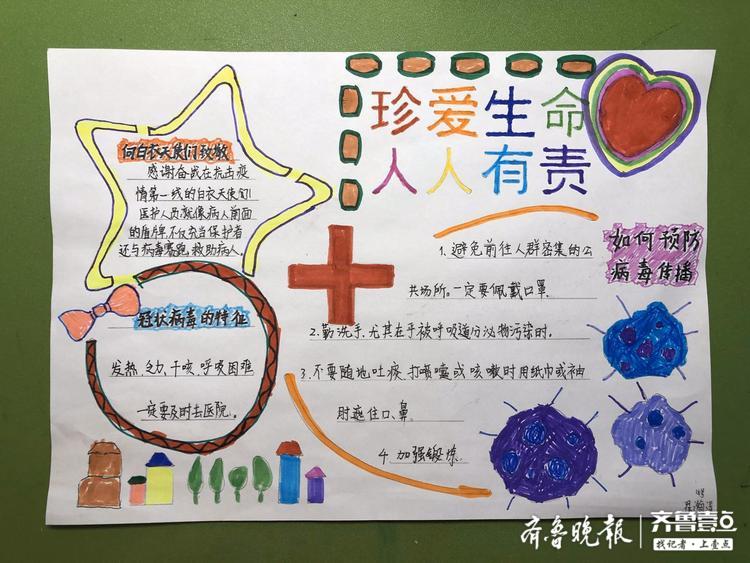 珍爱生命
人人有责
向白衣天使们致敬
感谢奋战在抗击疫
情第一线的白衣天使们!
医护人员就像病人前面
的盾牌,不仅充当保护者
还与病毒赛跑,救助病人。
冠状病毒的特征
发热,乏力,干咳,呼吸困难
一定要及时去医院。
如何预防
病毒传播
1.避免前往人群密集的公
共场所。一定要佩戴口罩.
2.勤洗手.尤其在手被呼吸道分泌物污染时.
3.不要随地吐痰.打喷嚏或咳嗽时用纸巾或袖
肘遮住口、鼻.
4.加强锻炼.
齐鲁晚报
齐鲁壹点
找记者·上壹点